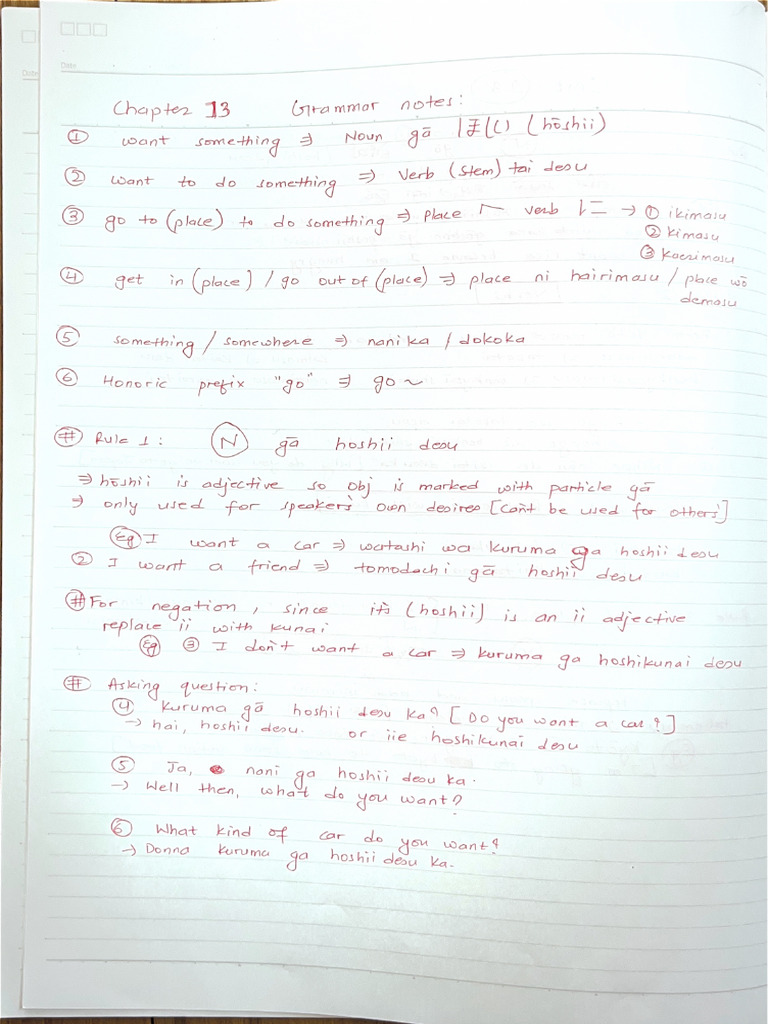 Date
Date
Chapter 13 Grammar notes:
① want something ⇒ Noun gā ほしい (hōshii)
② want to do something ⇒ Verb (stem) tai desu
③ go to (place) to do something ⇒ Place へ verb に → ① ikimasu
② kimasu
③ kaerimasu
④ get in (place) / go out of (place) ⇒ place ni hairimasu / place wō
demasu
⑤ something / somewhere ⇒ nanika / dokoka
⑥ Honoric prefix "go" ⇒ go ~
# Rule 1: N gā hoshii desu
⇒ hōshii is adjective so obj is marked with particle gā
⇒ only used for speaker's own desires [can't be used for others']
Eg I want a car ⇒ watashi wa kuruma ga hoshii desu
② I want a friend ⇒ tomodachi gā hoshii desu
# For negation, since it's (hoshii) is an ii adjective
replace ii with kunai
Eg ③ I don't want a car ⇒ kuruma ga hoshikunai desu
# Asking question:
④ kuruma gā hoshii desu ka? [Do you want a car?]
→ hai, hoshii desu. or iie hoshikunai desu
⑤ Ja, nani ga hoshii desu ka.
→ Well then, what do you want?
⑥ What kind of car do you want?
→ Donna kuruma ga hoshii desu ka.